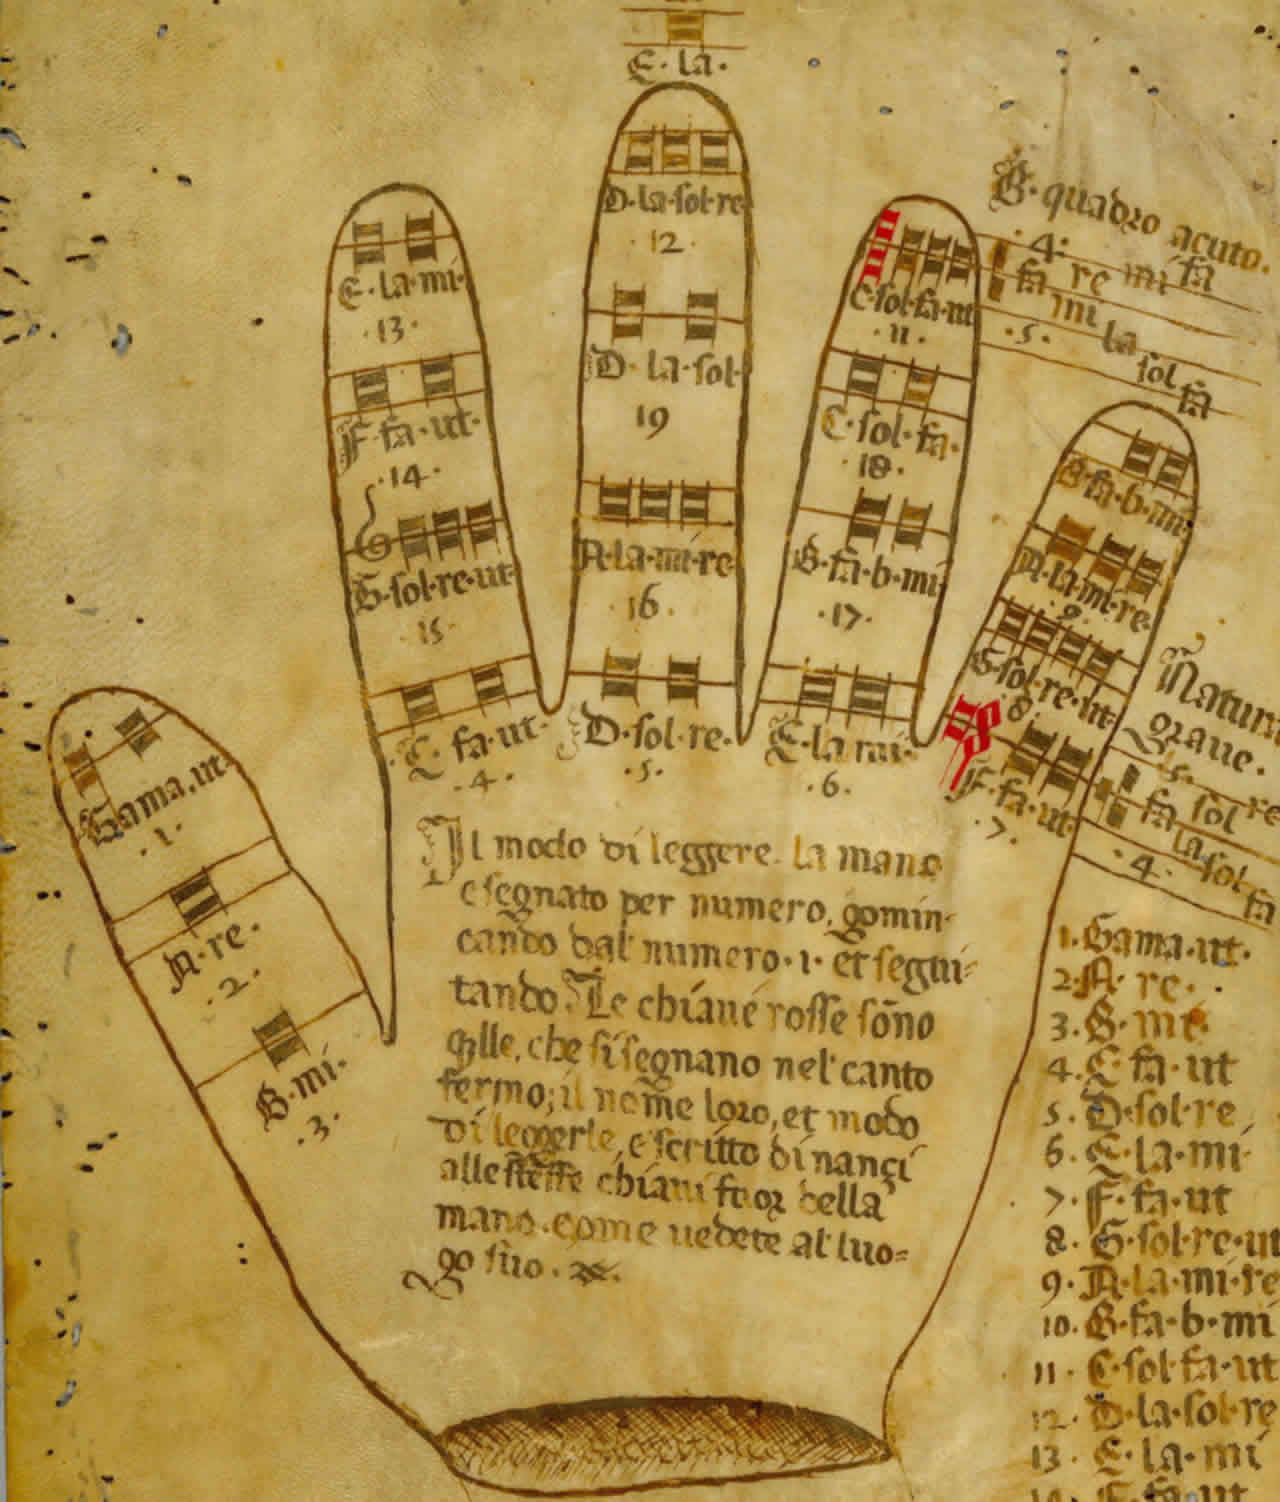 E·la·
D·la·sol·re
·12·
D·la·sol·
19
A·la·mi·re
·16·
D·sol·re·
·5·
E·la·mi·
·13·
F·fa·ut·
·14·
G·sol·re·ut·
·15·
C·fa·ut·
·4·
C·sol·fa·ut
·11·
C·sol·fa·
·18·
B·fa·b·mi
·17·
E·la mi·
·6·
B·quadro acuto.
·4·
fa re mi fa
mi la
·5·
sol fa
B·fa·b·mi·
A·la·mi·re·
9
G·sol·re·ut·
8
F·fa·ut·
·7·
Natura
graue.
·5·
fa sol re
la sol
·4·
fa
Gama·ut·
·1·
A·re·
·2·
B·mi·
·3·
Il modo di leggere la mano
e segnato per numero, gomin-
cando dal numero·1·et seguï=
tando. Le chiaue rosse sōno
qlle, che si segnano nel canto
fermo; il nome loro, et modo
di leggerle, e scritto dinançi
alle stesse chiaui fuor della
mano·come uedete al luo=
go suo·
1·Gama·ut·
2·A·re·
3·B·mi·
4·C·fa·ut
5·D·sol·re
6·E·la·mi·
7·F·fa·ut
8·G·sol·re·ut
9·A·la·mi·re
10·B·fa·b·mi
11·C·sol fa·ut
12·D·la·sol·re
13·E·la·mi
14·F·fa·ut